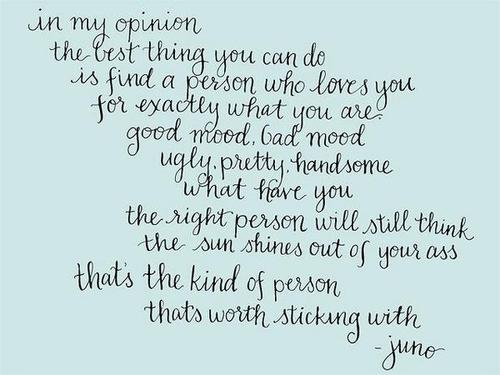 in my opinion
the best thing you can do
is find a person who loves you
for exactly what you are.
good mood, bad mood
ugly, pretty, handsome
what have you
the right person will still think
the sun shines out of your ass
that's the kind of person
that's worth sticking with
- juno